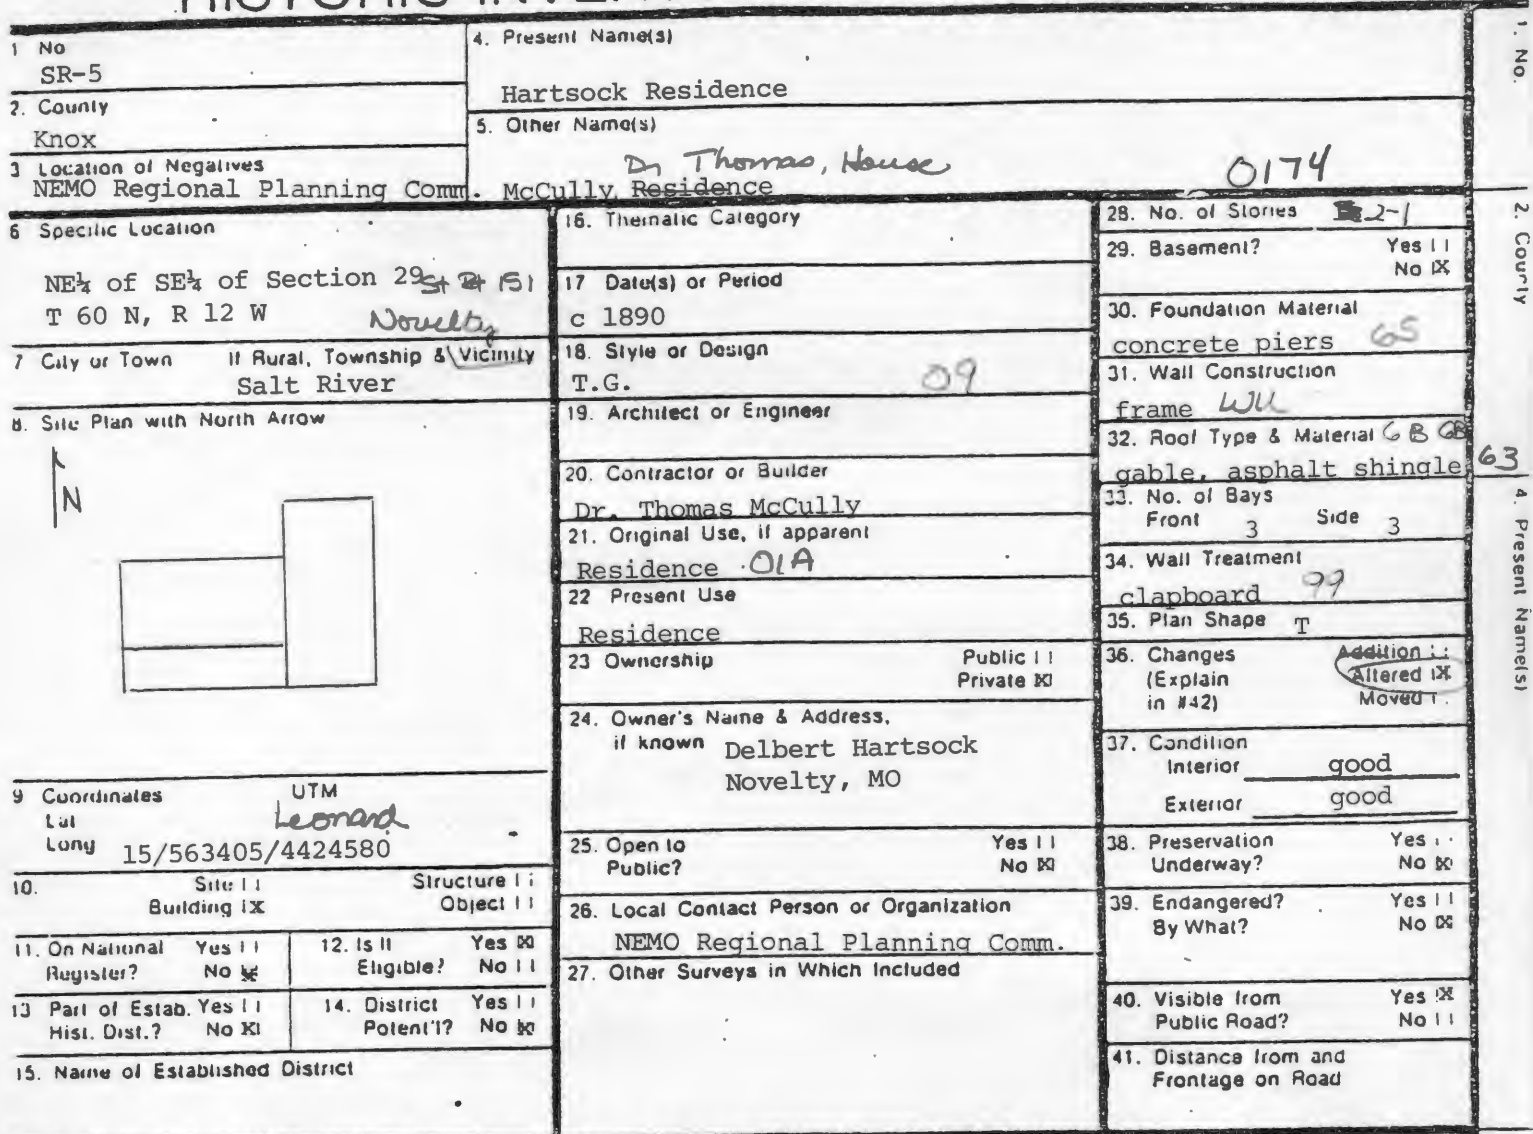 HISTORIC INVEN
1 No
SR-5
2. County
Knox
3 Location of Negatives
NEMO Regional Planning Comm.
4. Present Name(s)
Hartsock Residence
5. Other Name(s)
Dr Thomas, House
McCully Residence
0174
6 Specific Location
NE¼ of SE¼ of Section 29 St Rt 151
T 60 N, R 12 W Novelty
7 City or Town If Rural, Township & Vicinity
Salt River
8. Site Plan with North Arrow
N
9 Coordinates UTM
Lat Leonard
Long 15/563405/4424580
10. Site [ ] Structure [ ]
Building [X] Object [ ]
11. On National Yes [ ]
Register? No [X]
12. Is It Yes [X]
Eligible? No [ ]
13 Part of Estab. Yes [ ]
Hist. Dist.? No [X]
14. District Yes [ ]
Potent'l? No [X]
15. Name of Established District
16. Thematic Category
17 Date(s) or Period
c 1890
18. Style or Design
T.G. 09
19. Architect or Engineer
20. Contractor or Builder
Dr. Thomas McCully
21. Original Use, if apparent
Residence 01A
22 Present Use
Residence
23 Ownership Public [ ]
Private [X]
24. Owner's Name & Address,
if known Delbert Hartsock
Novelty, MO
25. Open to Yes [ ]
Public? No [X]
26. Local Contact Person or Organization
NEMO Regional Planning Comm.
27. Other Surveys in Which Included
28. No. of Stories 2-1
29. Basement? Yes [ ]
No [X]
30. Foundation Material
concrete piers 65
31. Wall Construction
frame WU
32. Roof Type & Material GB GB
gable, asphalt shingle 63
33. No. of Bays
Front 3 Side 3
34. Wall Treatment
clapboard 99
35. Plan Shape T
36. Changes Addition [ ]
(Explain Altered [X]
in #42) Moved [ ]
37. Condition
Interior good
Exterior good
38. Preservation Yes [ ]
Underway? No [X]
39. Endangered? Yes [ ]
By What? No [X]
40. Visible from Yes [X]
Public Road? No [ ]
41. Distance from and
Frontage on Road
1. No.
2. County
4. Present Name(s)